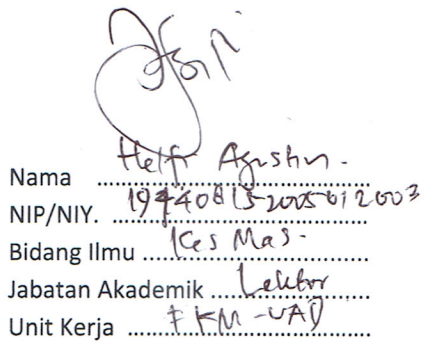 Nama Helfi Agustin.
NIP/NIY.
Bidang Ilmu Kes Mas.
Jabatan Akademik Lektor
Unit Kerja FKM-UAD